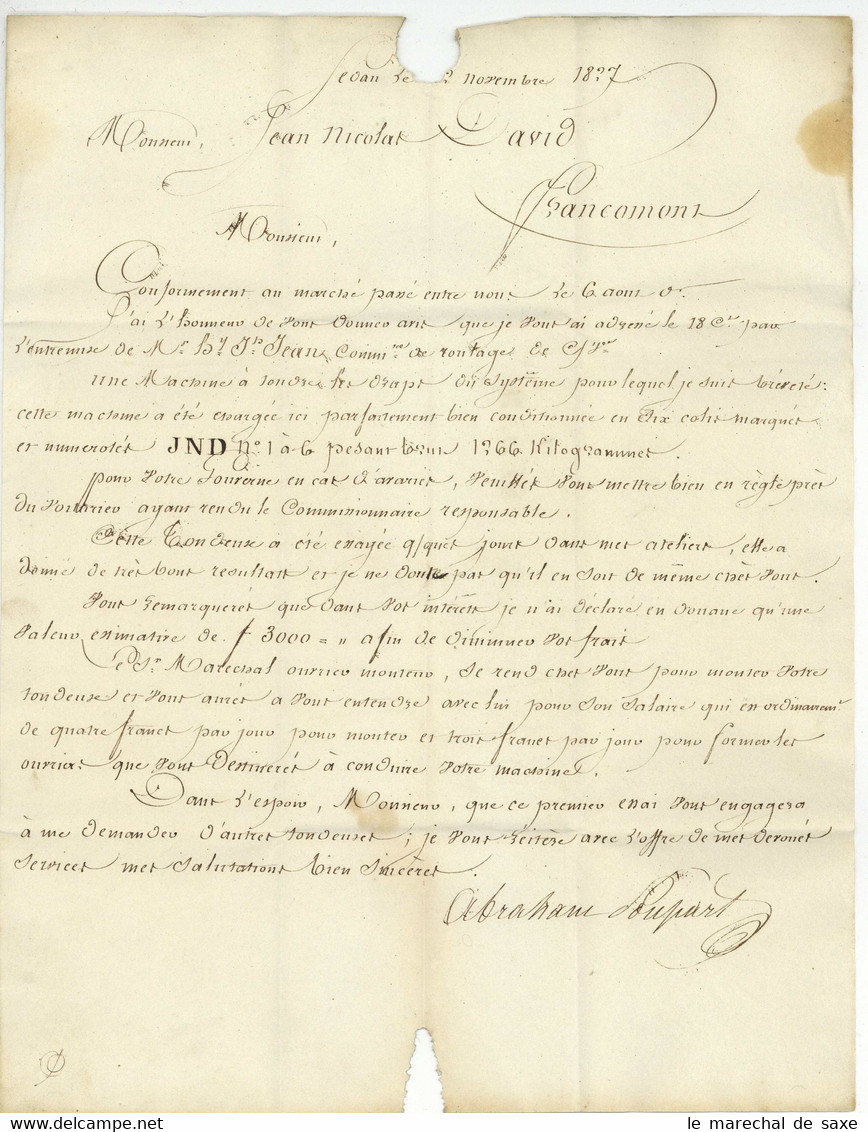 Sedan le 2 novembre 1827
Monsieur, Jean Nicolas David
Francomont
Monsieur,
Conformement au marché passé entre nous le 6 aout dr.
J'ai l'honneur de vous donner avis que je vous ai adressé le 18 Ct. par
l'entremise de Mr. hy. Jh. Jean, Commre. de roulage de
une Machine à tondre les draps du système pour lequel je suis bréveté:
cette machine a été chargée ici parfaitement bien conditionnée en six colis marqués
et numerotés JND No. 1 à 6 pesant brut 1366 Kilogrammes.
pour votre Gouverne en cas d'avaries, veuillés vous mettre bien en règle près
du voiturier ayant rendu le Commissionnaire responsable.
Cette Tondeuse a été essayée q/ques jours dans mes ateliers, elle a
donné de très bons resultats et je ne doute pas qu'il en soit de même chés vous.
Vous remarquerés que dans vos intérêts je n'ai déclaré en douane qu'une
valeur estimative de f 3000 = " afin de diminuer vos frais
Le Sr. Maréchal ouvrier monteur, se rend chés vous pour monter votre
tondeuse et vous aurés a vous entendre avec lui pour son salaire qui est ordinairemt.
de quatre francs par jour pour monter et trois francs par jour pour former les
ouvriers que vous destinerés à conduire votre machine.
Dans l'espoir, Monsieur, que ce premier essai vous engagera
à me demander d'autres tondeuses; je vous réitère avec l'offre de mes dévoués
services mes salutations bien sincères.
Abraham Poupart
le marechal de saxe